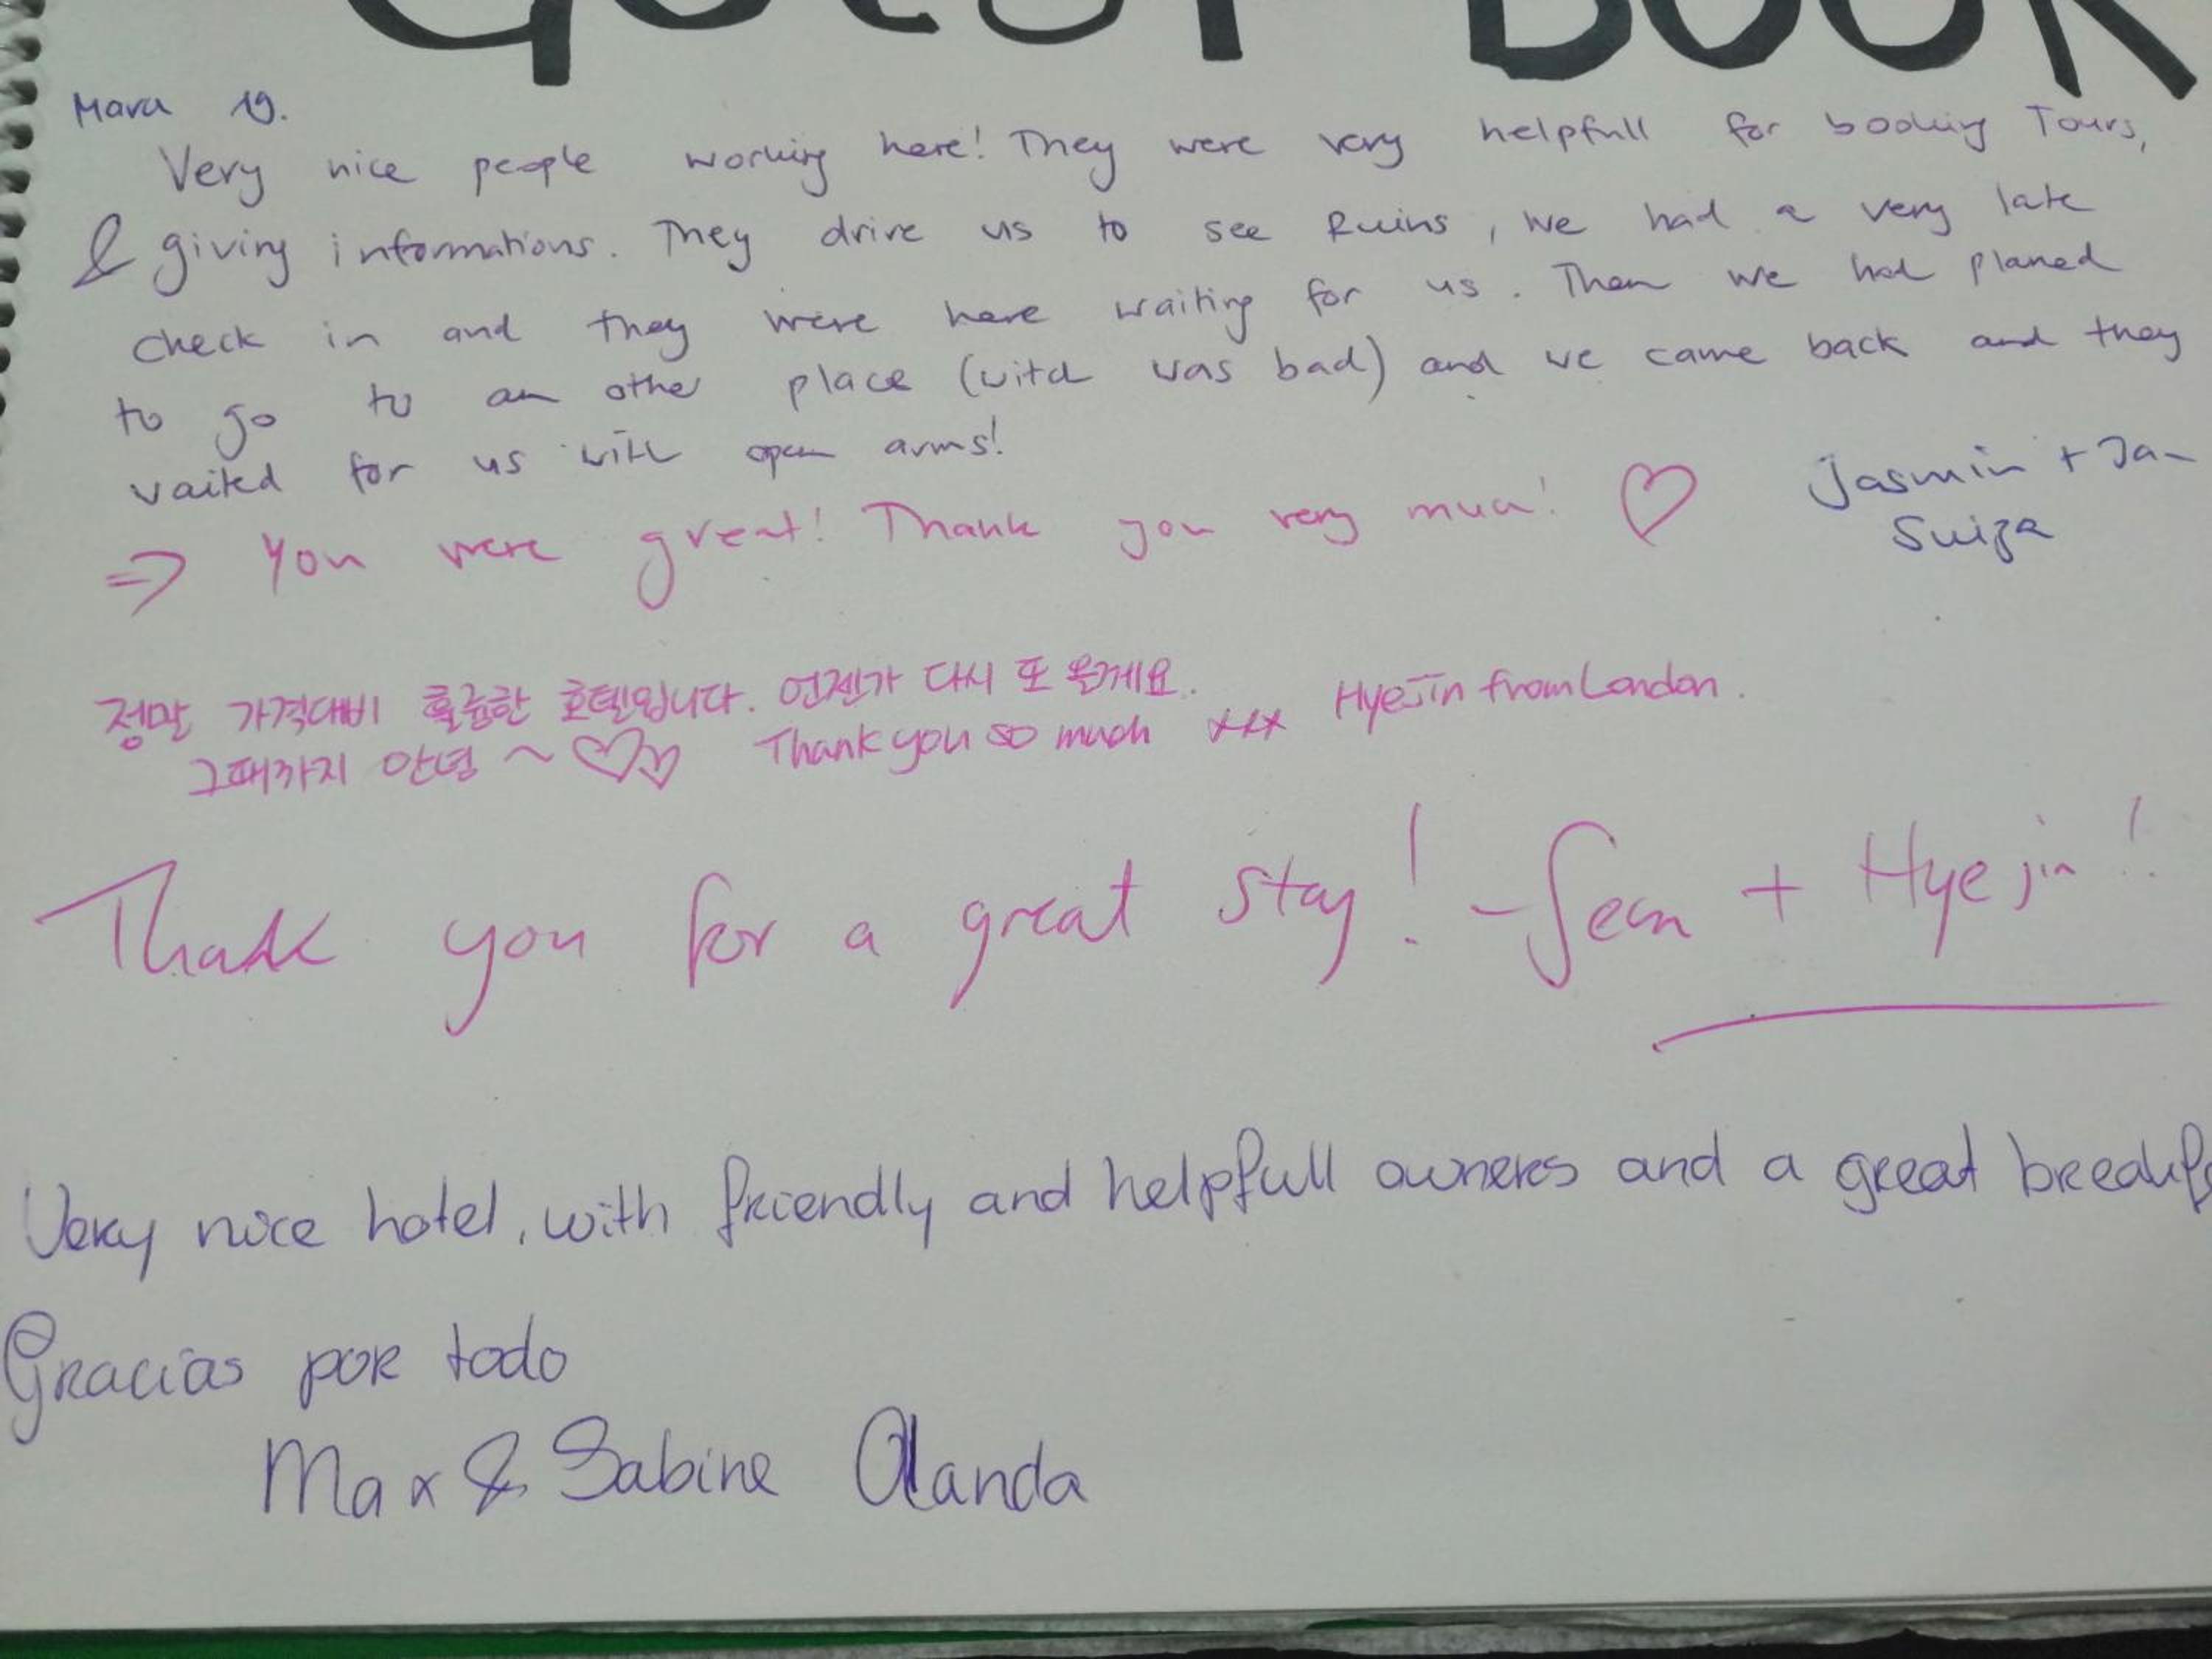 GUEST BOOK
Mara 19.
Very nice people working here! They were very helpfull for booking Tours,
& giving informations. They drive us to see Ruins, we had a very late
check in and they were here waiting for us. Then we had planed
to go to an other place (witch was bad) and we came back and they
waited for us with open arms!
⇒ You were great! Thank you very much! ♡ Jasmin + Jan
Suiza
정말 가격대비 훌륭한 호텔입니다. 언젠가 다시 또 올게요.
그때까지 안녕 ~ ♡♡ Thank you so much xxx Hyejin from London.
Thank you for a great stay! - Sean + Hyejin!!
Very nice hotel, with friendly and helpfull owners and a great breakf
Gracias por todo
Max & Sabine Olanda